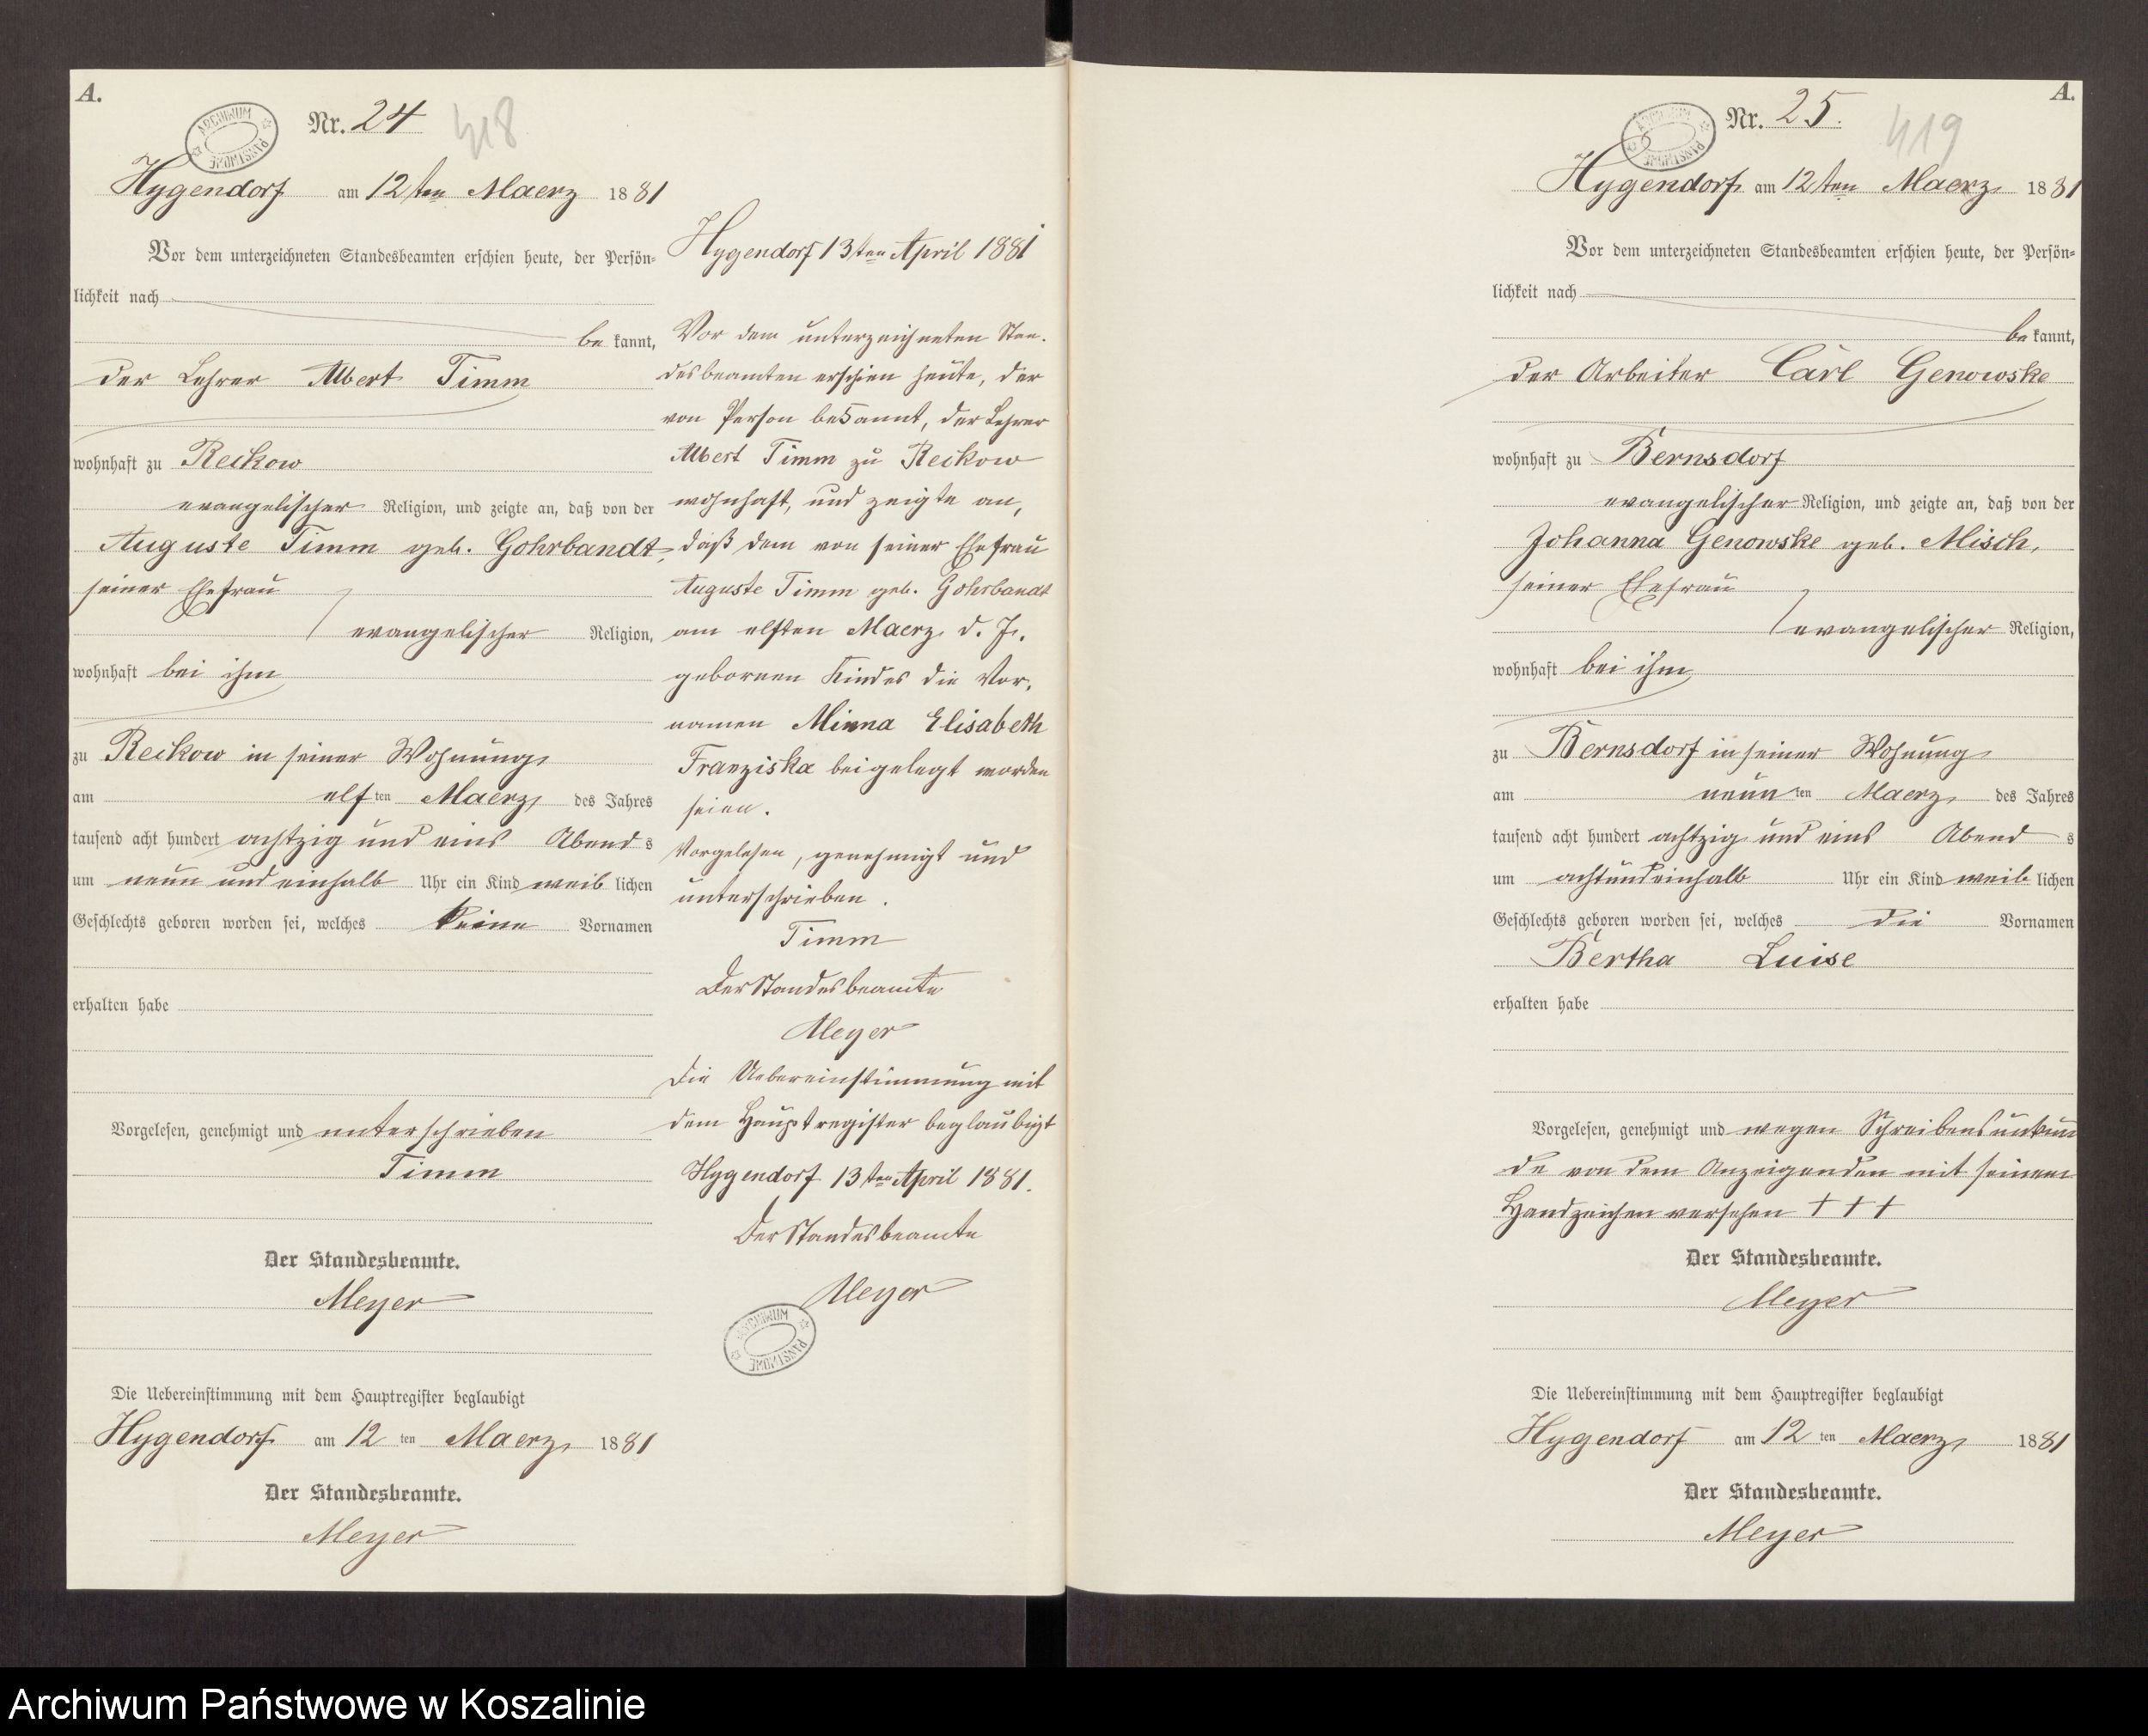 A.
ARCHIWUM PAŃSTWOWE
Nr. 24 418
Hygendorf am 12ten Maerz 1881
Vor dem unterzeichneten Standesbeamten erschien heute, der Persön-
lichkeit nach
be kannt,
der Lehrer Albert Timm
wohnhaft zu Reckow
evangelischer Religion, und zeigte an, daß von der
Auguste Timm geb. Gohrbandt,
seiner Ehefrau
evangelischer Religion,
wohnhaft bei ihm
zu Reckow in seiner Wohnung
am elf ten Maerz des Jahres
tausend acht hundert achtzig und eins Abend s
um neun und einhalb Uhr ein Kind weib lichen
Geschlechts geboren worden sei, welches keine Vornamen
erhalten habe
Vorgelesen, genehmigt und unterschrieben
Timm
Der Standesbeamte.
Meyer
Die Uebereinstimmung mit dem Hauptregister beglaubigt
Hygendorf am 12 ten Maerz 1881
Der Standesbeamte.
Meyer
Hygendorf 13ten April 1881
Vor dem unterzeichneten Stan-
desbeamten erschien heute, der
von Person bekannt, der Lehrer
Albert Timm zu Reckow
wohnhaft, und zeigte an,
daß dem von seiner Ehefrau
Auguste Timm geb. Gohrbandt
am elften Maerz d. J.
gebornen Kindes die Vor-
namen Minna Elisabeth
Franziska beigelegt worden
seien.
Vorgelesen, genehmigt und
unterschrieben.
Timm
Der Standesbeamte
Meyer
Die Uebereinstimmung mit
dem Hauptregister beglaubigt
Hygendorf 13ten April 1881.
Der Standesbeamte
Meyer
ARCHIWUM PAŃSTWOWE
A.
ARCHIWUM PAŃSTWOWE
Nr. 25. 419
Hygendorf am 12ten Maerz 1881
Vor dem unterzeichneten Standesbeamten erschien heute, der Persön-
lichkeit nach
be kannt,
der Arbeiter Carl Genowske
wohnhaft zu Bernsdorf
evangelischer Religion, und zeigte an, daß von der
Johanna Genowske geb. Misch,
seiner Ehefrau
evangelischer Religion,
wohnhaft bei ihm
zu Bernsdorf in seiner Wohnung
am neun ten Maerz des Jahres
tausend acht hundert achtzig und eins Abend s
um achtundeinhalb Uhr ein Kind weib lichen
Geschlechts geboren worden sei, welches die Vornamen
Bertha Luise
erhalten habe
Vorgelesen, genehmigt und wegen Schreibensunkun
de von dem Anzeigenden mit seinem
Handzeichen versehen + + +
Der Standesbeamte.
Meyer
Die Uebereinstimmung mit dem Hauptregister beglaubigt
Hygendorf am 12 ten Maerz 1881
Der Standesbeamte.
Meyer
Archiwum Państwowe w Koszalinie